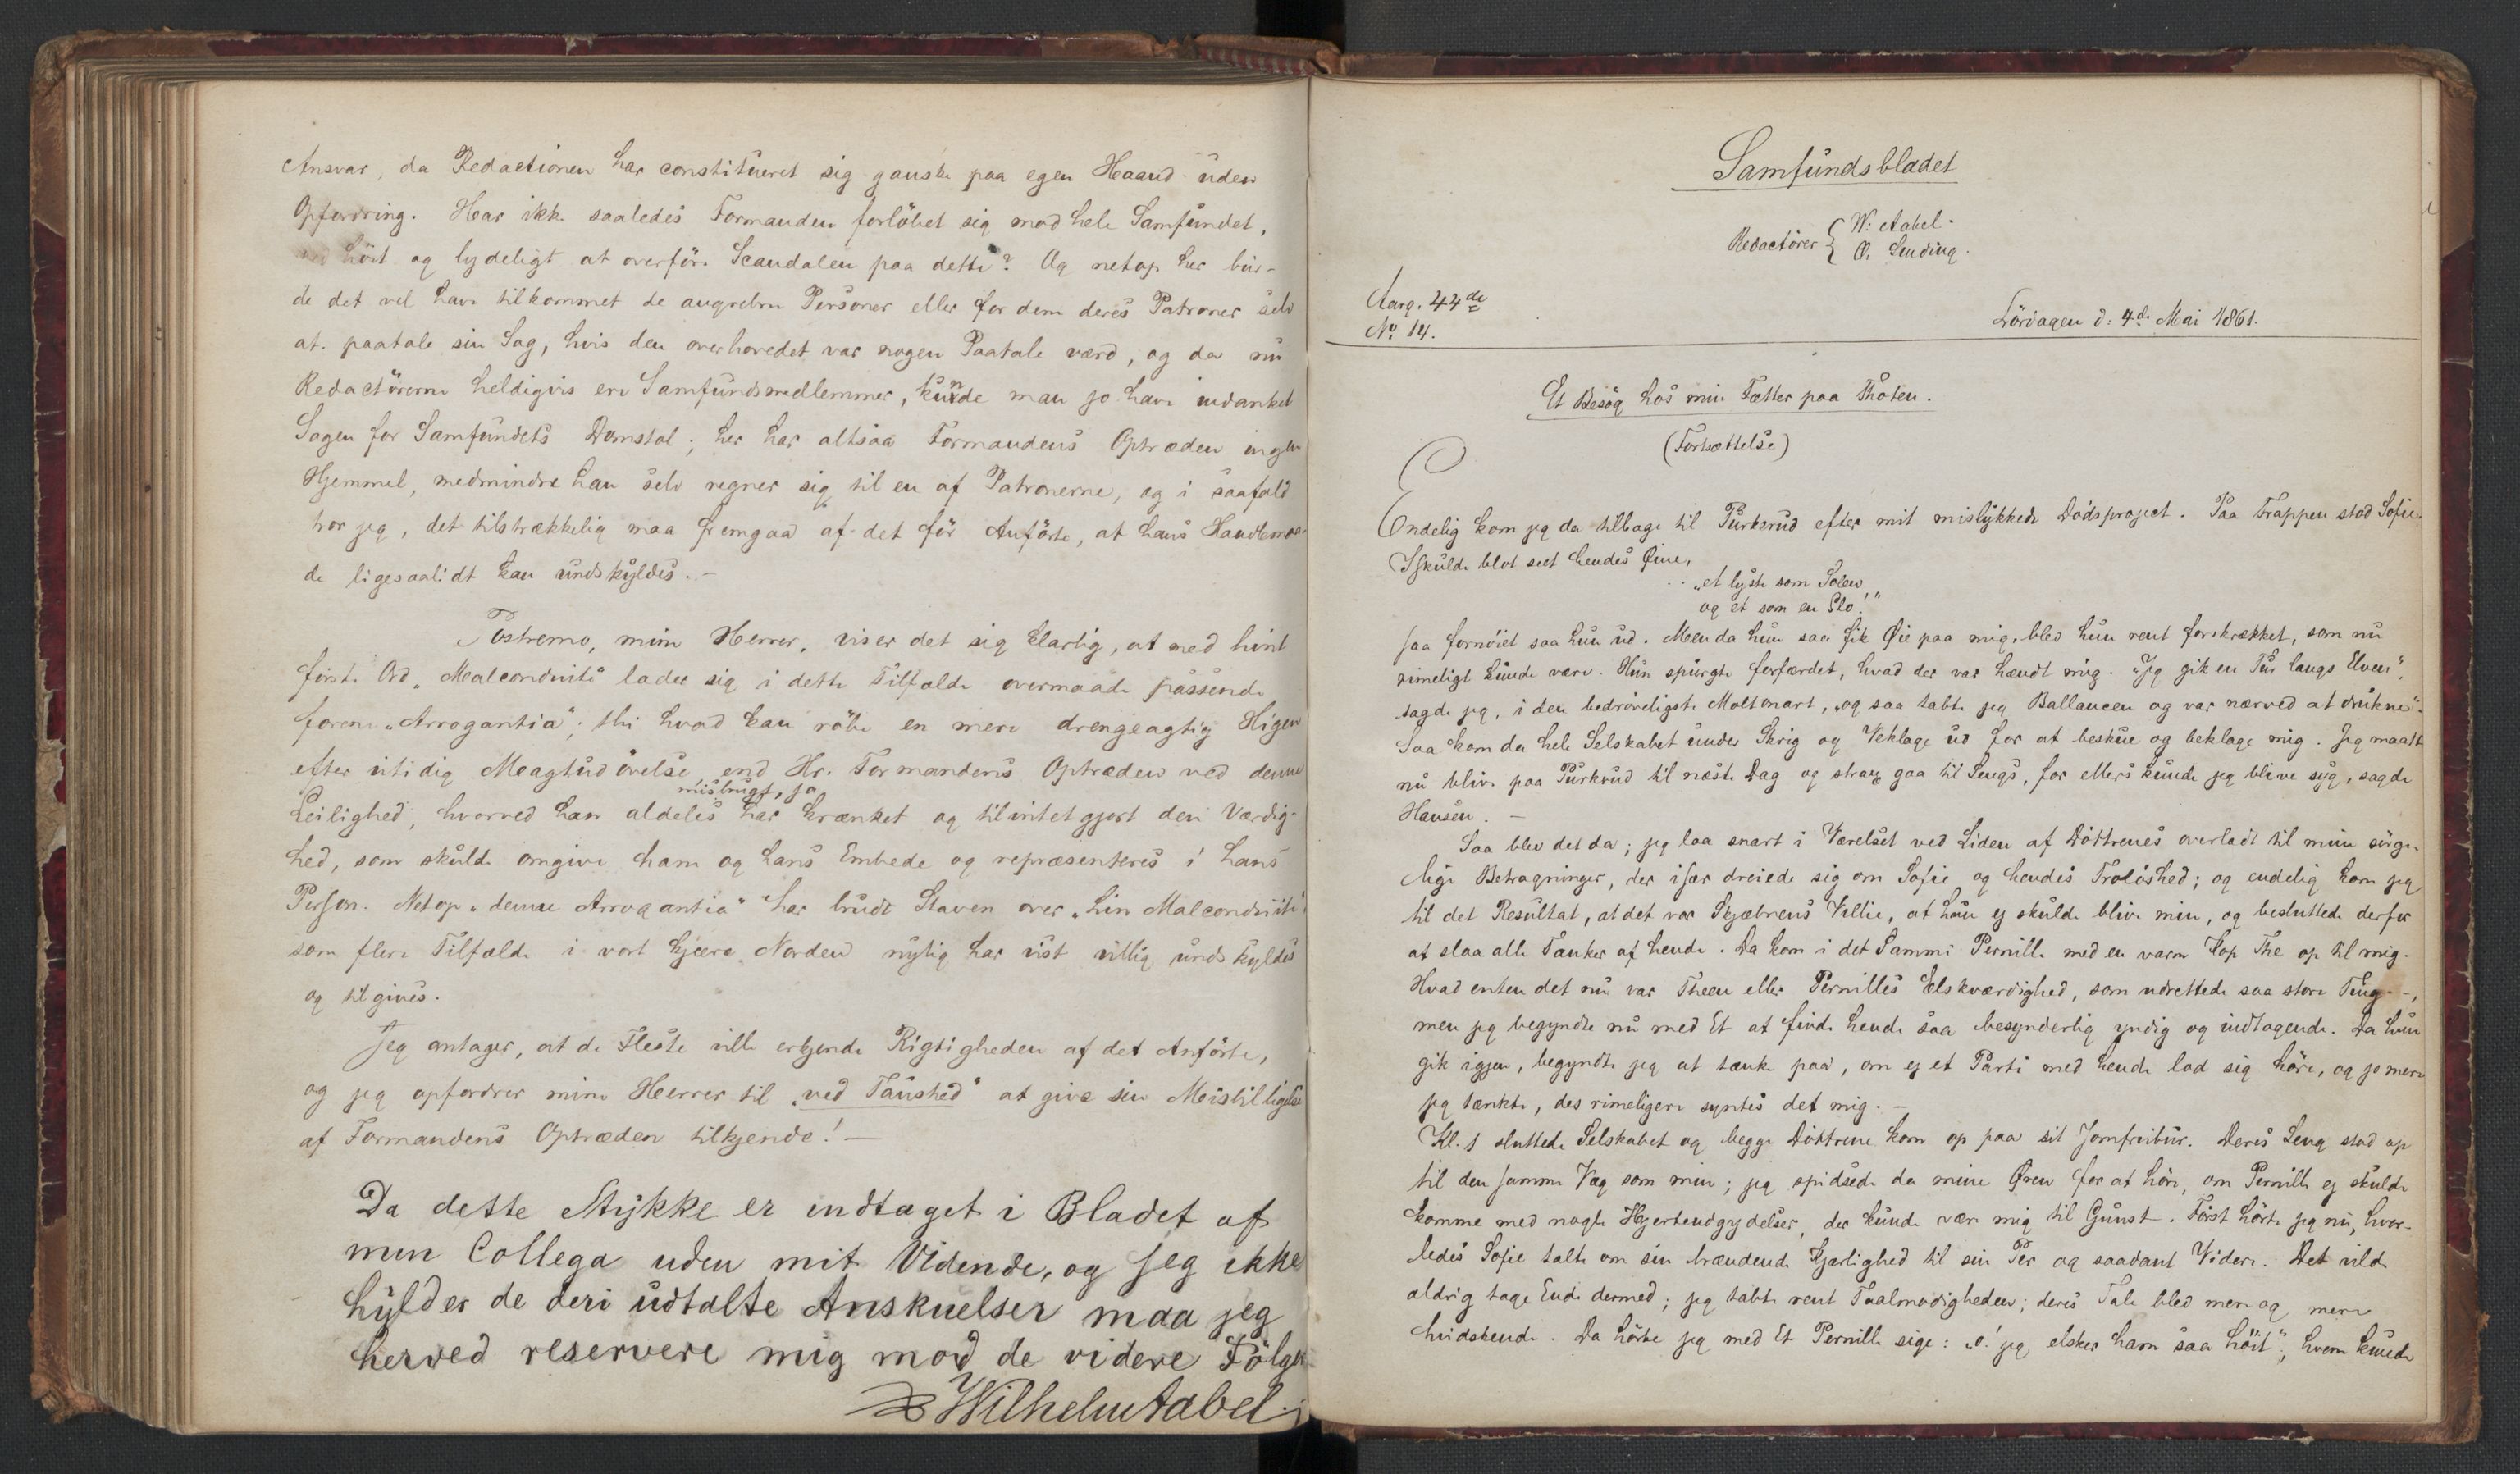 Ansvar, da Redactionen har constitueret sig ganske paa egen Haand uden
Opfordring. Har ikke saaledes Formanden forløbet sig mod hele Samfundet,
ved høit og lydeligt at overføre Scandalen paa dette? Og netop her bur-
de det vel have tilkommet de angrebne Personer eller for dem deres Patroner selv
at paatale sin Sag, hvis den overhovedet var nogen Paatale værd, og da nu
Redactørerne heldigvis ere Samfundsmedlemmer, kunde man jo have indanket
Sagen for Samfundets Domstol; her har altsaa Formandens Optræden ingen
Hjemmel, medmindre han selv regner sig til en af Patronerne, og i saafald
tror jeg, det tilstrækkelig maa fremgaa af det før Anførte, at hans Handlemaa-
de ligesaalidt kan undskyldes. –
Postremo, mine Herrer, viser det sig klarlig, at med hint
første Ord „Malconduite" lader sig i dette Tilfælde overmaade passende
forene „Arrogantia"; thi hvad kan røbe en mere drengeagtig Higen
efter utidig Magtudøvelse, end Hr. Formandens Optræden ved denne
misbrugt, ja
Leilighed, hvorved han aldeles har krænket og tilintetgjort den Værdig-
hed, som skulde omgive ham og hans Embede og repræsenteres i hans
Person. Netop „denne Arrogantia" har brudt Staven over „hin Malconduite",
som flere Tilfælde i vort kjære Norden nylig har vist villig undskyldes
og tilgives.
Jeg antager, at de Fleste ville erkjende Rigtigheden af det Anførte,
og jeg opfordrer mine Herrer til „ved Taushed" at give sin Misbilligelse
af Formandens Optræden tilkjende! –
Da dette Stykke er indtaget i Bladet af
min Collega uden mit Vidende, og jeg ikke
hylder de deri udtalte Anskuelser maa jeg
herved reservere mig mod de videre Følger
Wilhelm Aabel
Samfundsbladet
Redactører { W. Aabel.
O. Sending.
Aarg. 44de
No 14.
Lørdagen d. 4d. Mai 1861.
Et Besøg hos min Fætter paa Thoten.
(Fortsættelse)
Endelig kom jeg da tilbage til Purkerud efter mit mislykkede Dødsproject. Paa Trappen stod Sofie.
I skulde blot seet hendes Øine,
„et lyste som Solen
og et som en Glo!"
saa fornøiet saa hun ud. Men da hun saa fik Øie paa mig, blev hun rent forskrækket, som nu
rimeligt kunde være. Hun spurgte forfærdet, hvad der var hændt mig. „Jeg gik en Tur langs Elven",
sagde jeg, i den bedrøveligste Moltonart, „og saa tabte jeg Ballancen og var nærved at drukne".
Saa kom da hele Selskabet under Skrig og Veklage ud for at beskue og beklage mig. Jeg maatte
nu blive paa Purkerud til næste Dag og strax gaa til Sengs, for ellers kunde jeg blive syg, sagde
Hansen. –
Saa blev det da; jeg laa snart i Værelset ved Siden af Døttrenes overladt til mine sørge-
lige Betragninger, der især dreiede sig om Sofie og hendes Troløshed; og endelig kom jeg
til det Resultat, at det var Skjæbnens Villie, at hun ej skulde blive min, og besluttede derfor
at slaa alle Tanker af hende. Da kom i det Samme Pernille med en varm Kop The op til mig.
Hvad enten det nu var Theen eller Pernilles Elskværdighed, som udrettede saa store Ting –,
men jeg begyndte nu med Et at finde hende saa besynderlig yndig og indtagende. Da hun
gik igjen, begyndte jeg at tænke paa, om ej et Parti med hende lod sig høre, og jo mere
jeg tænkte, des rimeligere syntes det mig. –
Kl. 1 sluttede Selskabet og begge Døttrene kom op paa sit Jomfrubur. Deres Seng stod op
til den samme Væg som min; jeg spidsede da mine Øren for at høre, om Pernille ej skulde
komme med nogle Hjerteudgydelser, der kunde være mig til Gunst. Først hørte jeg nu, hvor-
ledes Sofie talte om sin brændende Kjærlighed til sin Per og saadant Videre. Det vilde
aldrig tage Ende dermed; jeg tabte rent Taalmodigheden; deres Tale blev mere og mere
hvidskende. Da hørte jeg med Et Pernille sige: „o! jeg elsker ham saa høit"; hvem kunde